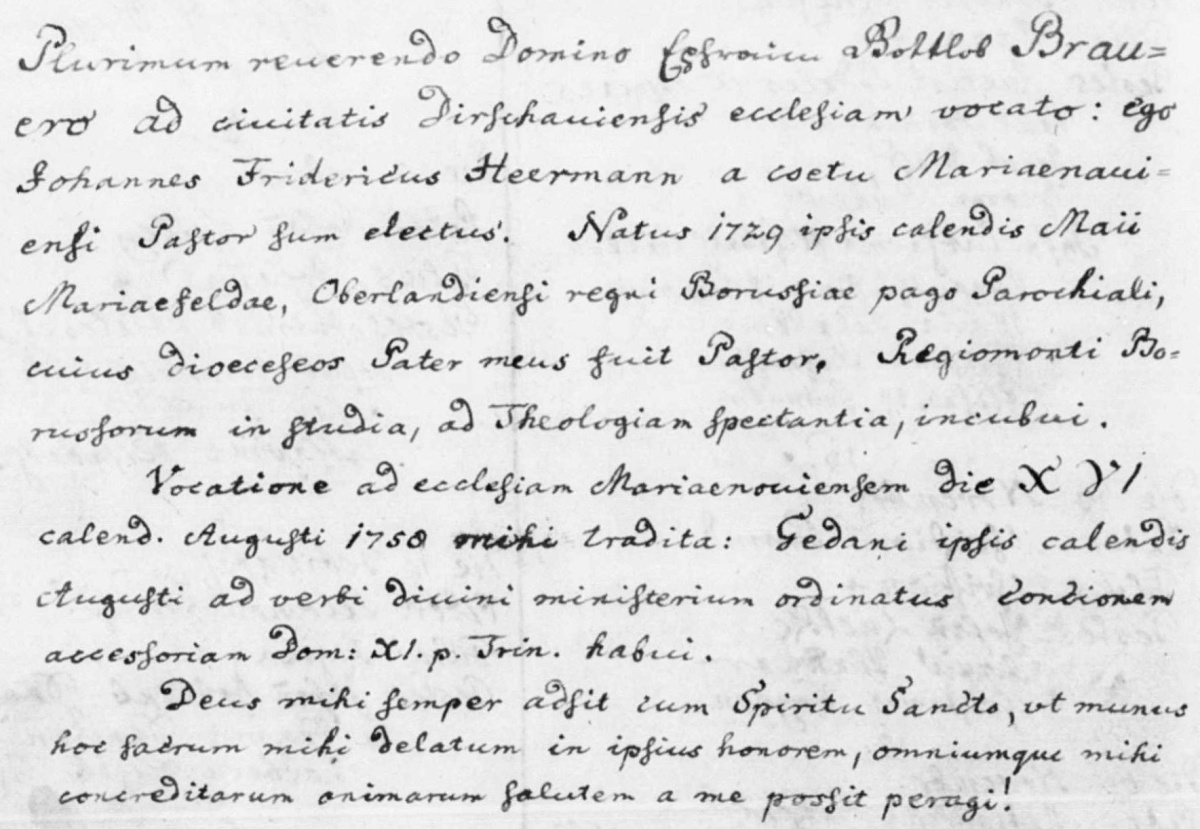 Plurimum reuerendo Domino Ephraim Gottlob Brau=
ero ad ciuitatis Dirschauiensis ecclesiam vocato: ego
Johannes Fridericus Heermann a coetu Mariaenoui=
ensi Pastor sum electus. Natus 1729 ipsis calendis Maii
Mariaefeldae, Oberlandiensi regni Borussiae pago Parochiali,
cuius dioeceseos Pater meus fuit Pastor. Regiomonti Bo=
russorum in studia, ad Theologiam spectantia, incubui.
Vocatione ad ecclesiam Mariaenouiensem die XVI
calend. Augusti 1758 mihi tradita: Gedani ipsis calendis
Augusti ad verbi diuini ministerium ordinatus concionem
accessoriam Dom: XI. p. Trin. habui.
Deus mihi semper adsit cum Spiritu Sancto, vt munus
hoc sacrum mihi delatum in ipsius honorem, omniumque mihi
concreditarum animarum salutem a me possit peragi!